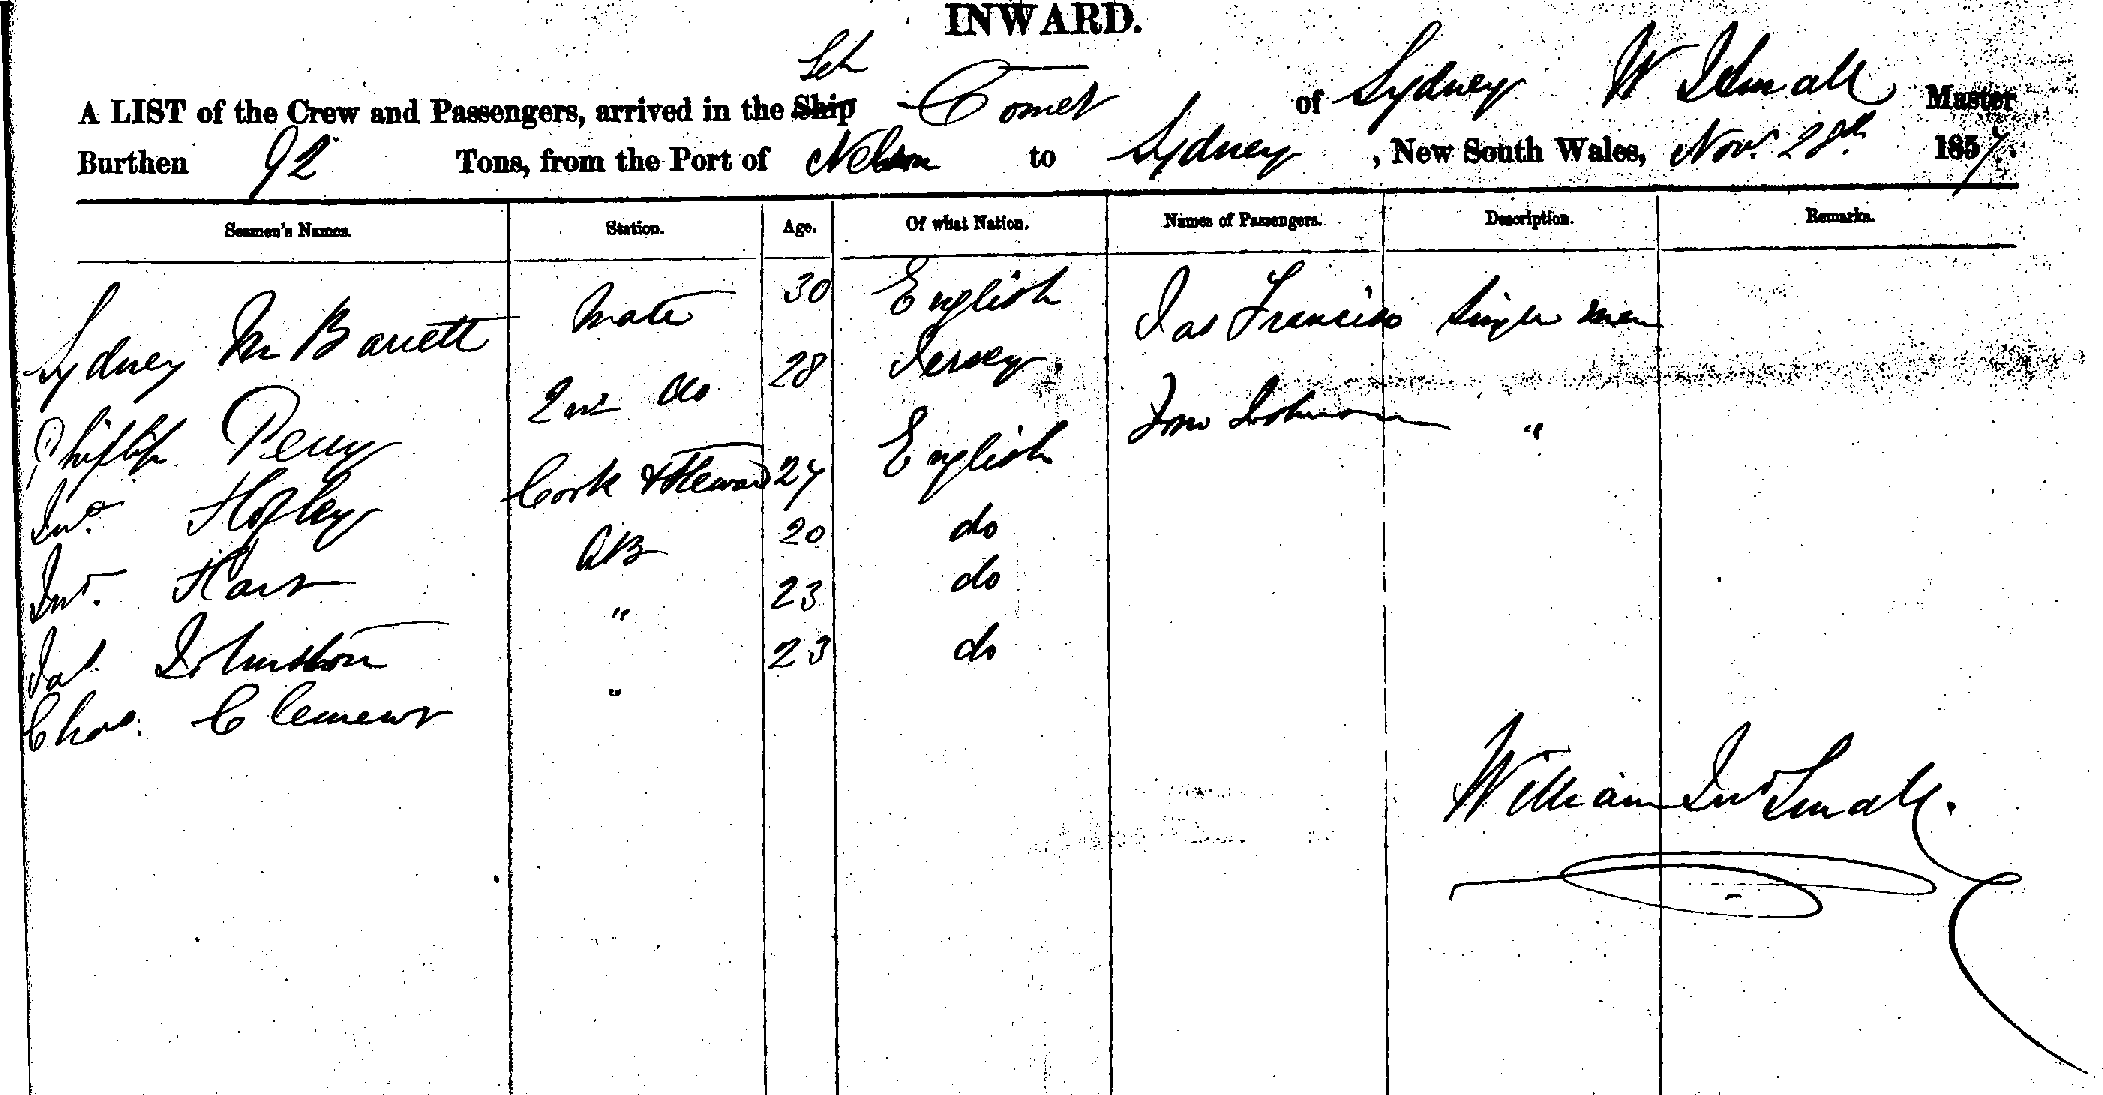 INWARD.
Sch
A LIST of the Crew and Passengers, arrived in the Ship Comet of Sydney W J Small Master
Burthen 92 Tons, from the Port of Nelson to Sydney, New South Wales, Novr. 28th 1857.
Seamen's Names. Station. Age. Of what Nation. Names of Passengers. Description. Remarks.
Sydney M Barrett Mate 30 English Jas Francis Single men
Phillip Perry 2nd do 28 Jersey Johnson "
Jno. Cook & Steward 27 English
Jno. Hart AB 20 do
Jas. Johnston " 23 do
Chas. Clement " 23 do
William Jno Small.